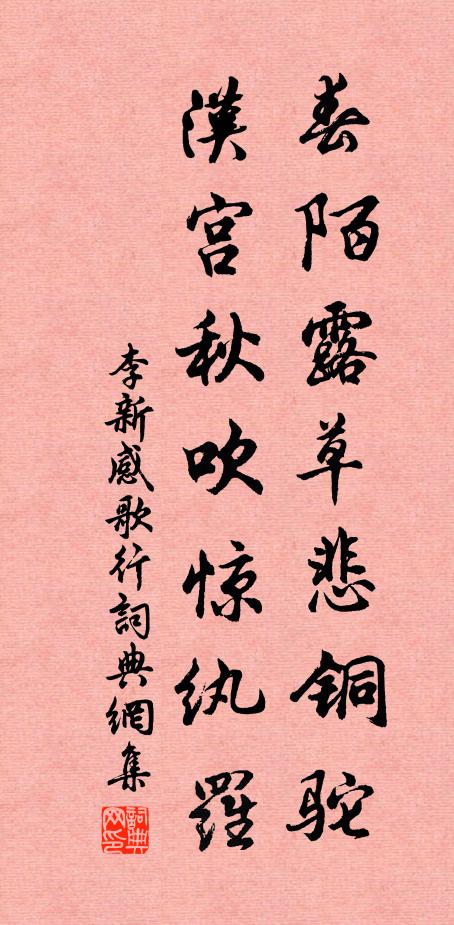 春陌露草悲铜驼
漢宫秋吹惊纨羅
李新感歌行詞典網集
詞典网印